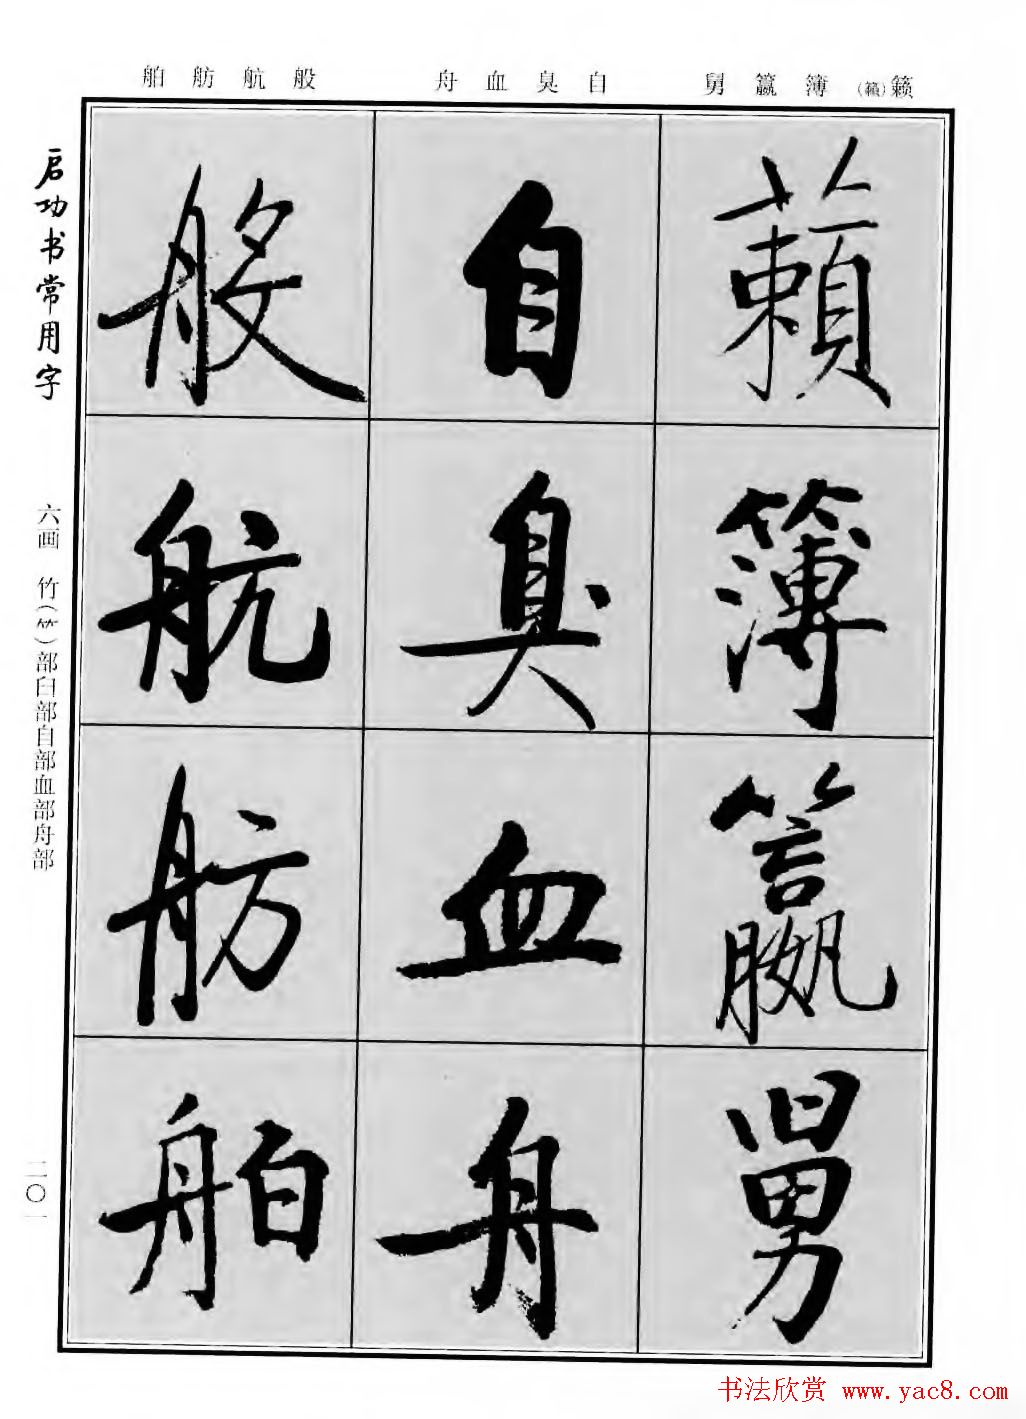 籁(籟)簿籝舅 自臭血舟 般航舫舶
籟 簿 籝 舅
自 臭 血 舟
般 航 舫 舶
启功书常用字
六画 竹(⺮)部臼部自部血部舟部
二〇一
书法欣赏 www.yac8.com